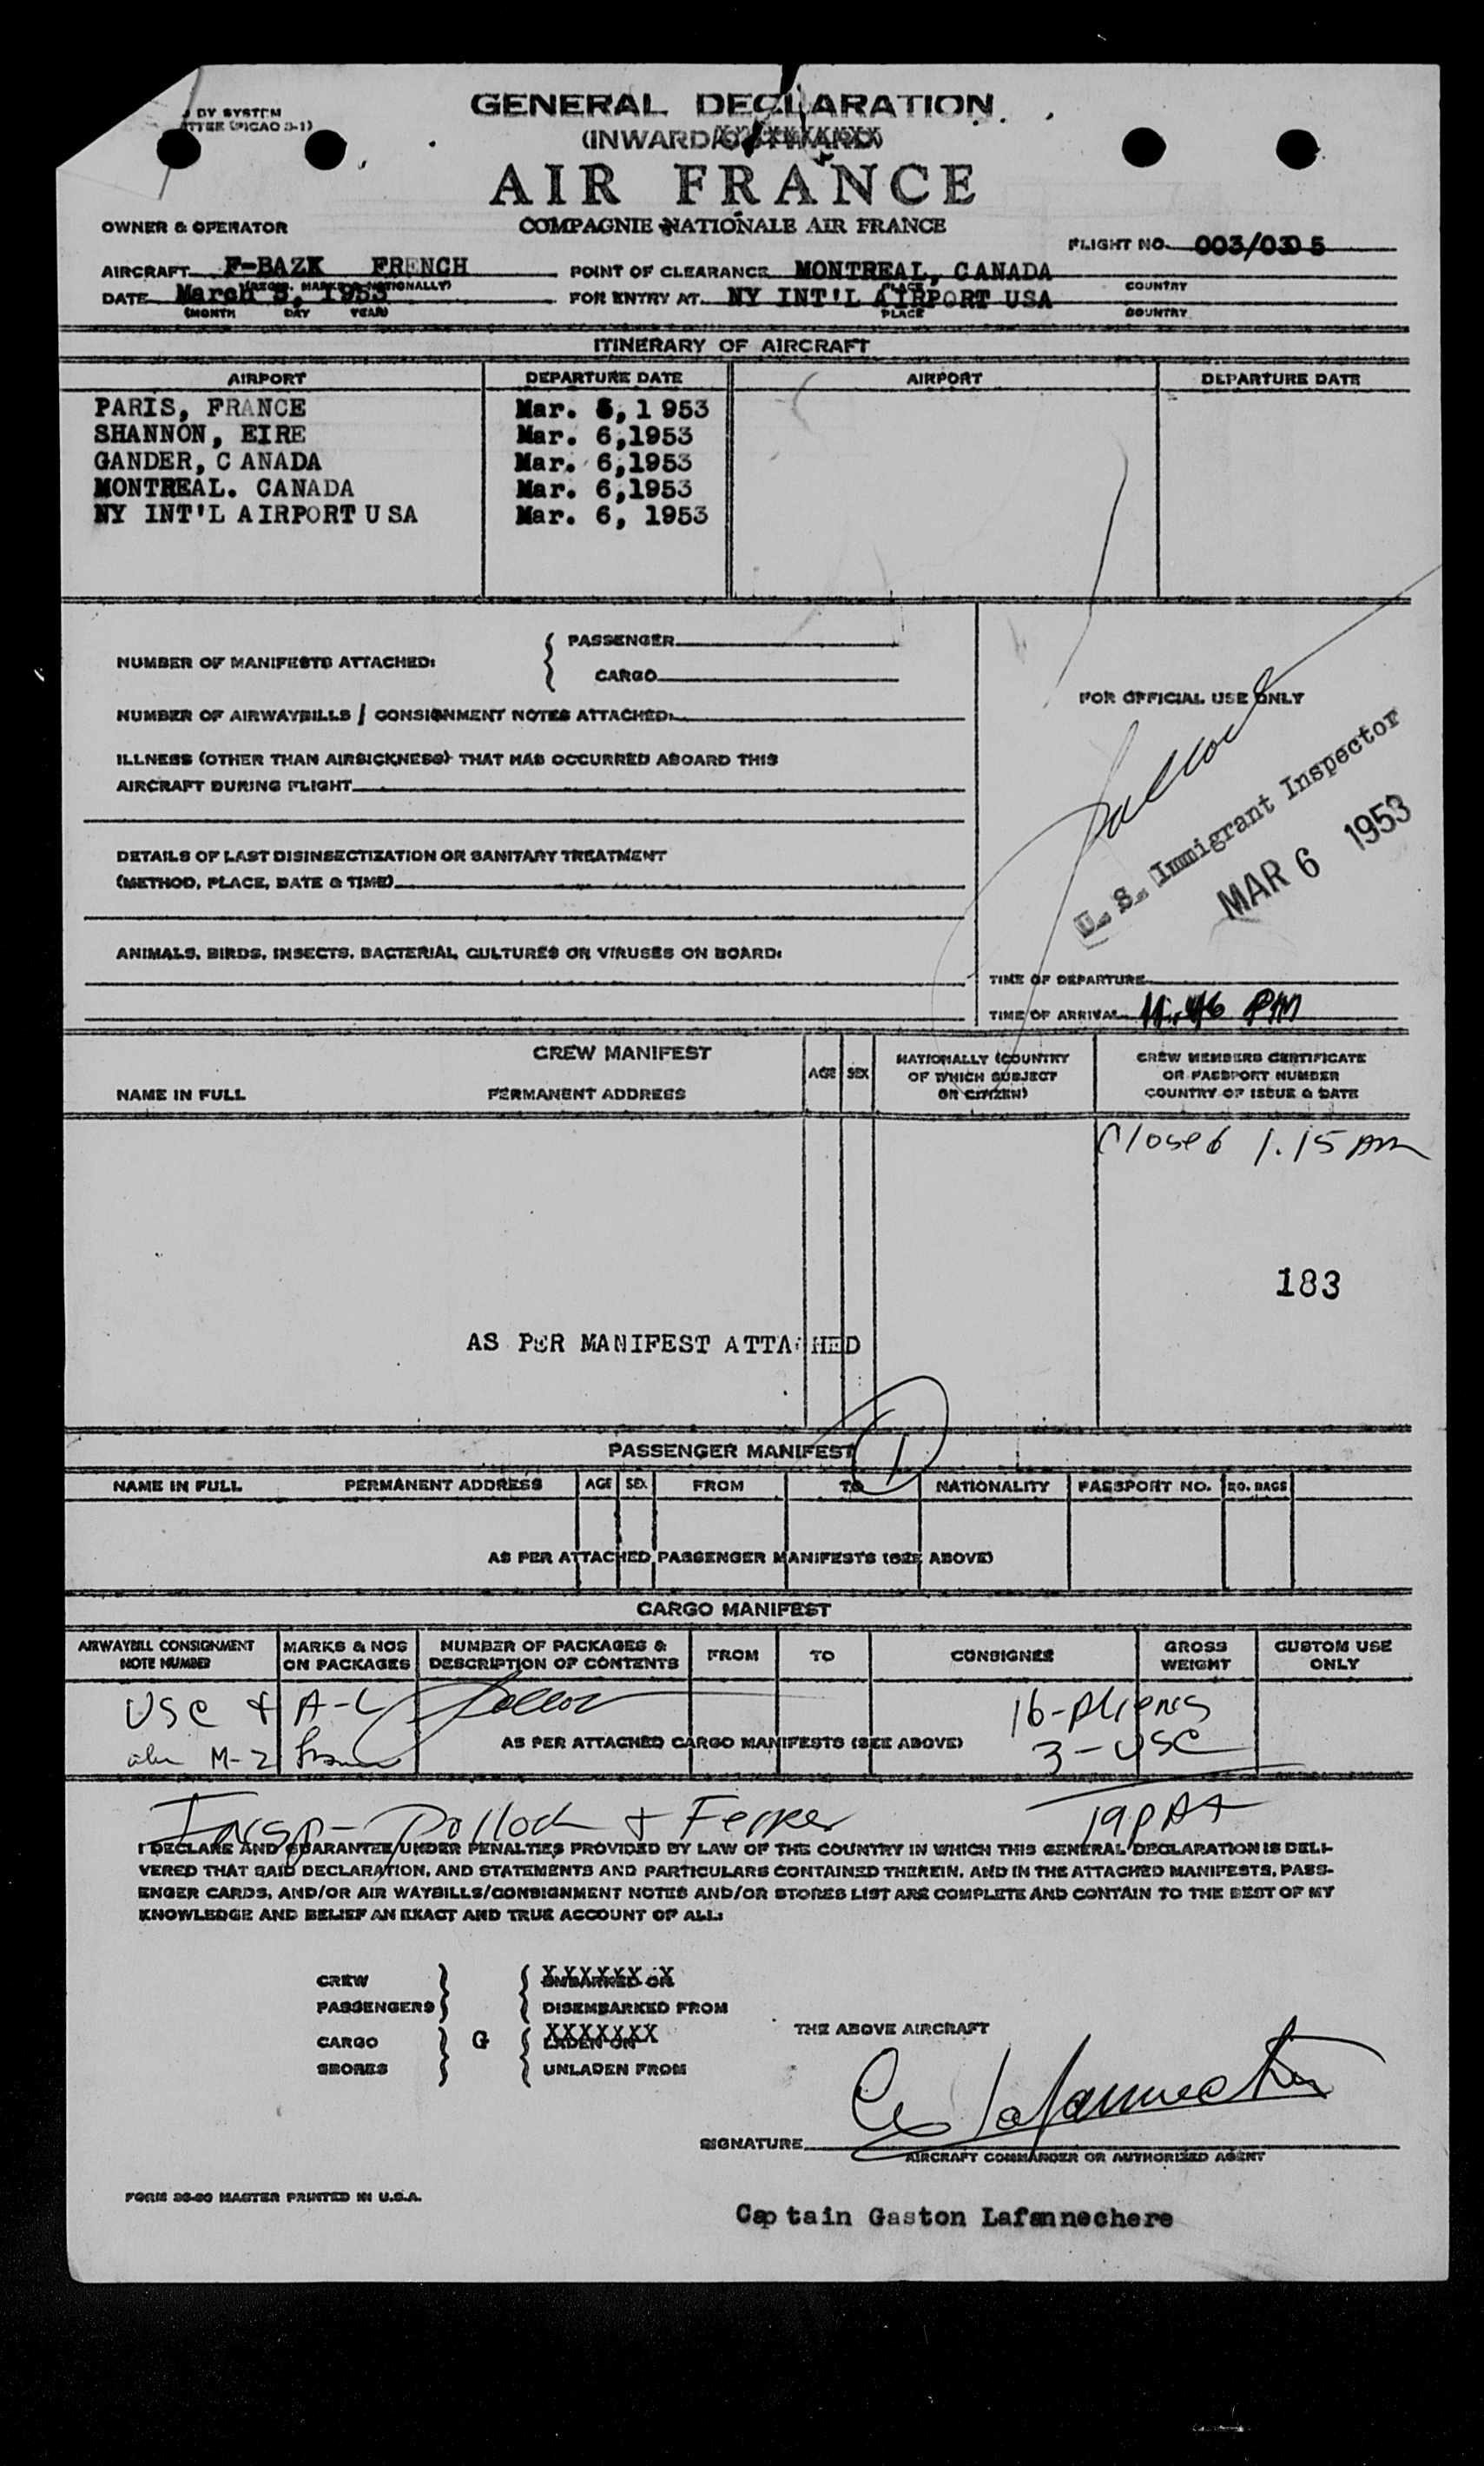 DY SYSTEM
GENERAL DECLARATION
(INWARD/OUTWARD)
AIR FRANCE
COMPAGNIE NATIONALE AIR FRANCE
OWNER & OPERATOR
FLIGHT NO. 003/03 05
AIRCRAFT F-BAZK FRENCH POINT OF CLEARANCE MONTREAL, CANADA
(REGN. MARKS & NATIONALLY) PLACE COUNTRY
DATE March 5, 1953 FOR ENTRY AT NY INT'L AIRPORT USA
(MONTH DAY YEAR) PLACE COUNTRY
ITINERARY OF AIRCRAFT
AIRPORT DEPARTURE DATE AIRPORT DEPARTURE DATE
PARIS, FRANCE Mar. 5, 1 953
SHANNON, EIRE Mar. 6,1953
GANDER, C ANADA Mar. 6,1953
MONTREAL. CANADA Mar. 6,1953
NY INT'L AIRPORT U SA Mar. 6, 1953
NUMBER OF MANIFESTS ATTACHED: PASSENGER
CARGO
FOR OFFICIAL USE ONLY
NUMBER OF AIRWAYBILLS / CONSIGNMENT NOTES ATTACHED:
ILLNESS (OTHER THAN AIRSICKNESS) THAT HAS OCCURRED ABOARD THIS
AIRCRAFT DURING FLIGHT
U. S. Immigrant Inspector
MAR 6 1953
DETAILS OF LAST DISINSECTIZATION OR SANITARY TREATMENT
(METHOD, PLACE, DATE & TIME)
ANIMALS, BIRDS, INSECTS, BACTERIAL CULTURES OR VIRUSES ON BOARD:
TIME OF DEPARTURE
TIME OF ARRIVAL 11.46 PM
CREW MANIFEST
NAME IN FULL PERMANENT ADDRESS AGE SEX NATIONALLY (COUNTRY OF WHICH SUBJECT OR CITIZEN) CREW MEMBERS CERTIFICATE OR PASSPORT NUMBER COUNTRY OF ISSUE & DATE
Closed 1.15 AM
183
AS PER MANIFEST ATTACHED
PASSENGER MANIFEST 1
NAME IN FULL PERMANENT ADDRESS AGE SEX FROM TO NATIONALITY PASSPORT NO. NO. BAGS
AS PER ATTACHED PASSENGER MANIFESTS (SEE ABOVE)
CARGO MANIFEST
AIRWAYBILL CONSIGNMENT NOTE NUMBER MARKS & NOS ON PACKAGES NUMBER OF PACKAGES & DESCRIPTION OF CONTENTS FROM TO CONSIGNEE GROSS WEIGHT CUSTOM USE ONLY
USC & A-L Pollock 16-Aliens
M-Z AS PER ATTACHED CARGO MANIFESTS (SEE ABOVE) 3-USC
Insp- Pollock & Ferker 19 PAX
I DECLARE AND GUARANTEE UNDER PENALTIES PROVIDED BY LAW OF THE COUNTRY IN WHICH THIS GENERAL DECLARATION IS DELI-
VERED THAT SAID DECLARATION, AND STATEMENTS AND PARTICULARS CONTAINED THEREIN, AND IN THE ATTACHED MANIFESTS, PASS-
ENGER CARDS, AND/OR AIR WAYBILLS/CONSIGNMENT NOTES AND/OR STORES LIST ARE COMPLETE AND CONTAIN TO THE BEST OF MY
KNOWLEDGE AND BELIEF AN EXACT AND TRUE ACCOUNT OF ALL:
CREW EMBARKED ON
PASSENGERS DISEMBARKED FROM
CARGO G LADEN ON THE ABOVE AIRCRAFT
STORES UNLADEN FROM
SIGNATURE
AIRCRAFT COMMANDER OR AUTHORIZED AGENT
FORM 36-50 MASTER PRINTED IN U.S.A.
Cap tain Gaston Lafannechere